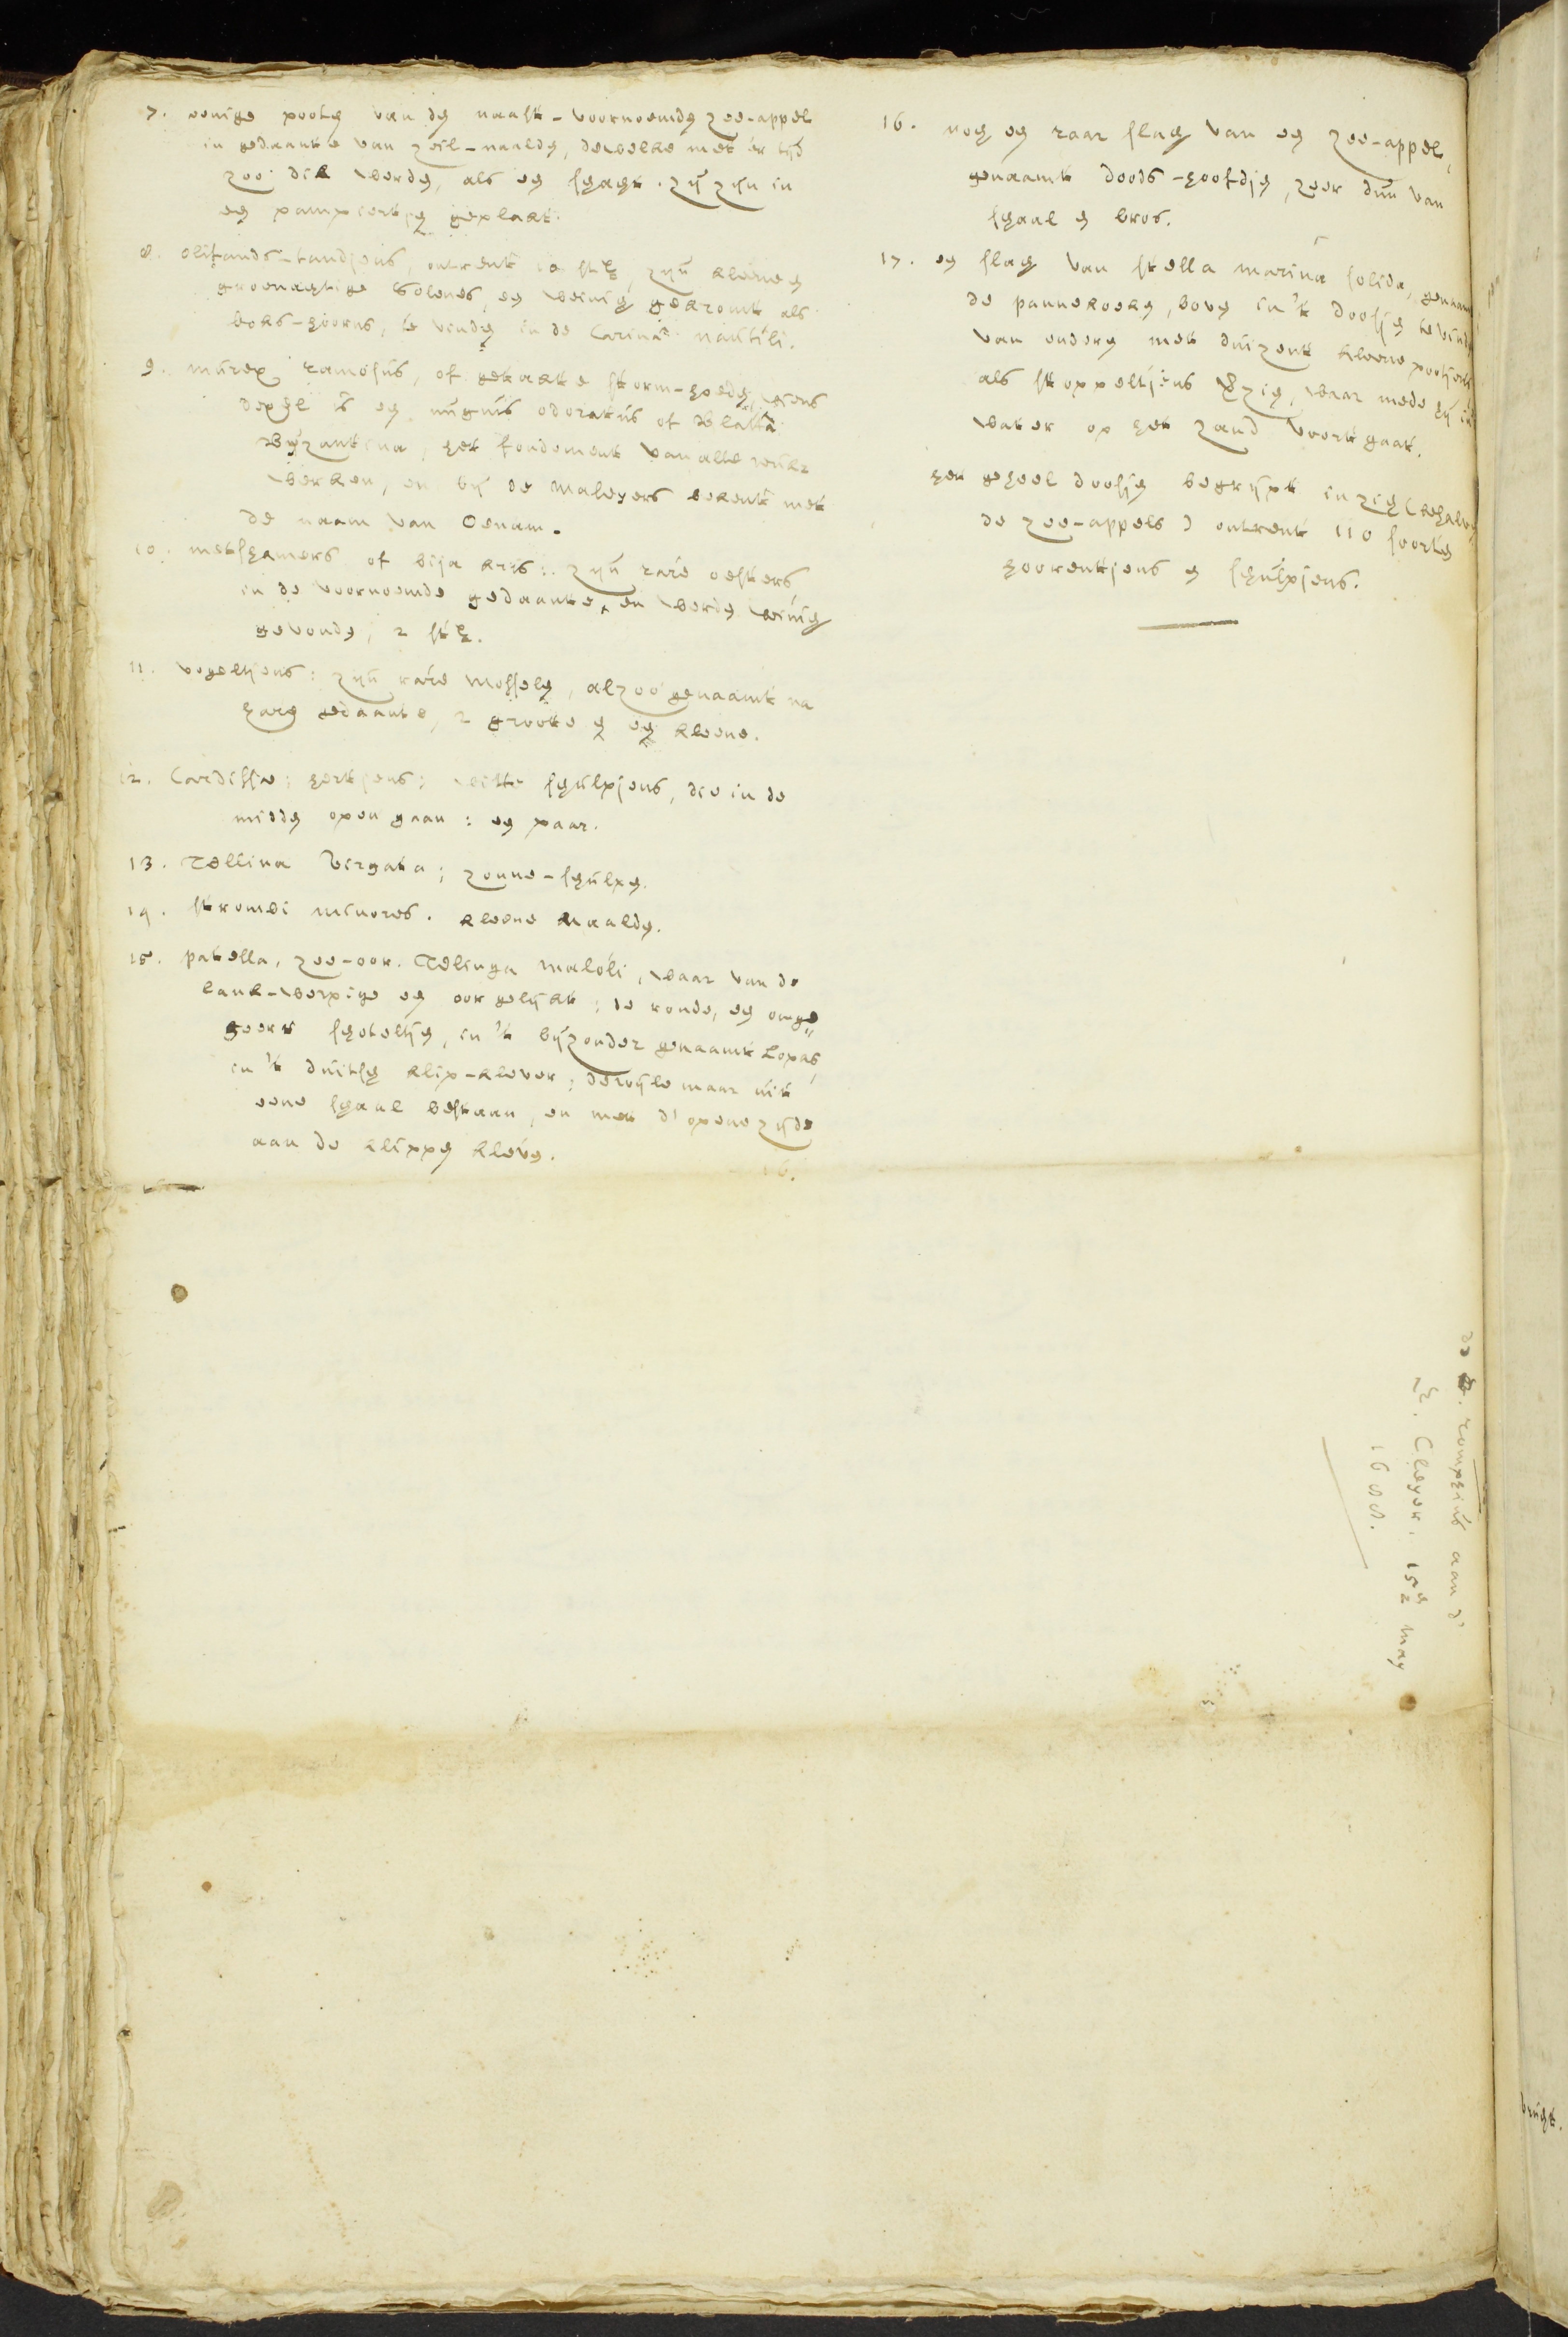 7. eenige pooten van den naast-voornoemden zee-appel
in gedaante van zeil-naalden, dewelke met er tijd
zoo dik werden, als een schagt. zij zijn in
een pampiertjen geplakt.
8. olifands-tandjens, ontrent 10 stx, zijn kleene
groenagtige Solenes, een weinig gekromt als
boks-hoorns, te vinden in de Carina nautili.
9. murex ramosus, of getakte storm-hoeden, wiens
dexel is een unguis odoratus of Blatta
Byzantina, het fondement van alle reuk-
werken, en bij de Maleyers bekent met
de naam van Oenam.
10. metshamers of bisa kris: zijn rare oesters
in de voornoemde gedaante, en werden weinig
gevonden, 2 stx.
11. vogeltjens: zijn rare Mosselen, alzoo genaamt na
haren gedaante, 2 groote en een kleene.
12. Cardissa; hertjens; witte schulpjens, die in de
midden open gaan: een paar.
13. Tellina Virgata; zonne-schulpen.
14. strombi minores. kleene naalden.
15. patella, zee-oor. Telinga maloli, waar van de
lank-werpige een oor gelijkt; de ronde, een omge=
keert schoteltjen, in 't bijzonder genaamt Lopas,
in 't duitsch klip-klever; dewijle maar uit
eene schaal bestaan, en met d' opene zijde
aan de klippen kleven.
16.
16. noch een raar slach van een zee-appel,
genaamt doods-hoofdjen, zeer dun van
schaal en bros.
17. een slach van stella marina solida, genaam
de pannekoeken, boven in 't doosjen te vind
van onderen met duizent kleene pootjens
als stoppeltjens verzien, waar mede hij in
water op het zand voort gaat.
het geheel doosjen begrijpt in zich (behalven
de zee-appels) ontrent 110 soorten
hoorentjens en schulpjens.
de H. romphius aan d'
H. Cleyer, 15en may
1688.
brught.